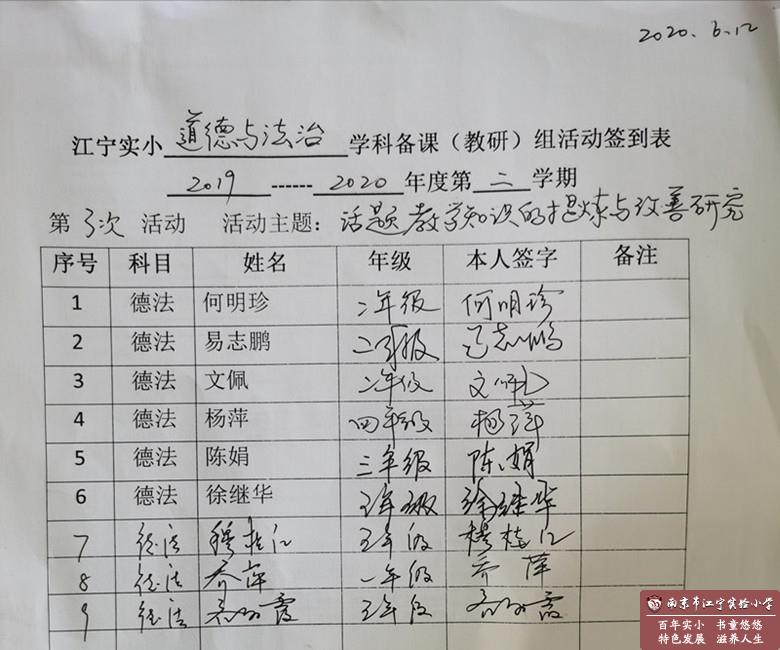 2020.6.12
江宁实小 道德与法治 学科备课（教研）组活动签到表
2019 ------ 2020 年度第 二 学期
第 3次 活动 活动主题：话题教学知识的提炼与改善研究
序号 科目 姓名 年级 本人签字 备注
1 德法 何明珍 二年级 何明珍
2 德法 易志鹏 二年级 易志鹏
3 德法 文佩 二年级 文佩
4 德法 杨萍 四年级 杨萍
5 德法 陈娟 三年级 陈娟
6 德法 徐继华 五年级 徐继华
7 德法 穆桂江 五年级 穆桂江
8 德法 乔萍 一年级 乔萍
9 德法 霞 五年级 霞
南京市江宁实验小学
百年实小 书童悠悠
特色发展 滋养人生